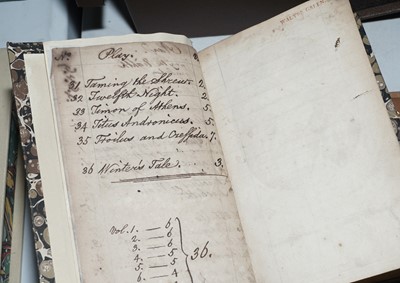 No. Play.
31 Taming the Shrew. 2.
32 Twelfth Night. 2.
33 Timon of Athens. 5.
34 Titus Andronicus. 5.
35 Troilus and Cressida. 7.
36 Winter's Tale. 3.
Vol. 1. — 6
2. — 6
3. — 6
4. — 5
5. — 5
6. — 4
36.